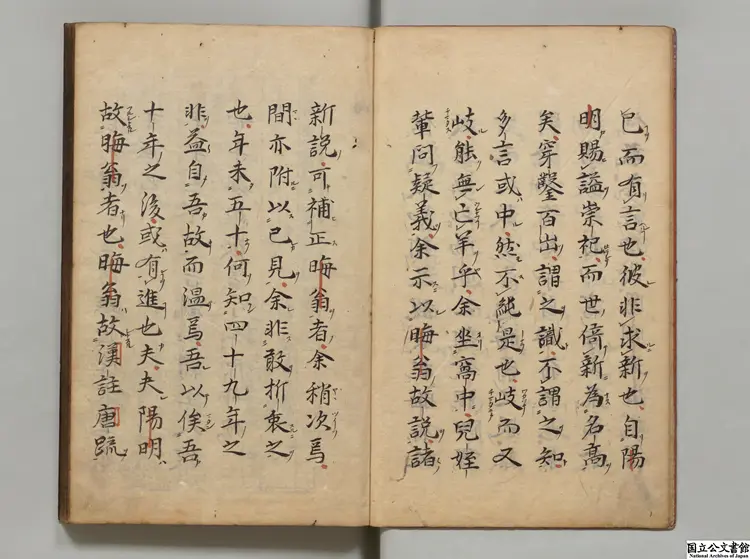 已而有言也彼非求新也自陽
明賜謚崇祀而世倚新為名高
矣穿鑿百出謂之識不謂之知
多言或中然不純是也岐而又
岐能無亡羊乎余坐窩中兒姪
輩問疑義余示以晦翁故説諸
新説可補正晦翁者余稍次焉
間亦附以已見余非敢折衷之
也年未五十何知四十九年之
非益自吾故而溫焉吾以俟吾
十年之後或有進也夫夫陽明
故晦翁者也晦翁故漢註唐䟽
国立公文書館
National Archives of Japan